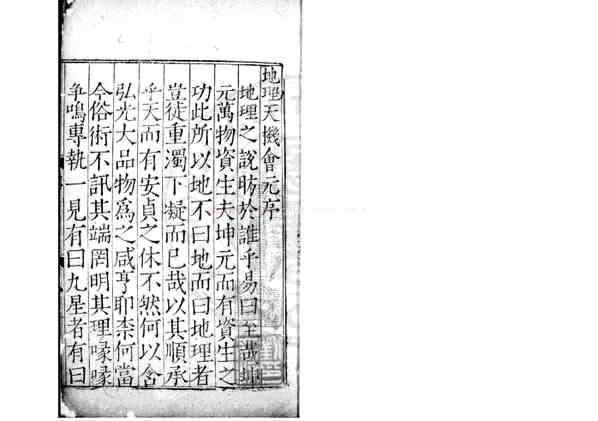 地理天機會元序
地理之說昉於誰乎易曰至哉坤
元萬物資生夫坤元而有資生之
功此所以地不曰地而曰地理者
豈徒重濁下凝而已哉以其順承
乎天而有安貞之休不然何以含
弘光大品物為之咸亨耶柰何當
今俗術不訊其端罔明其理喙喙
爭鳴專執一見有曰九星者有曰